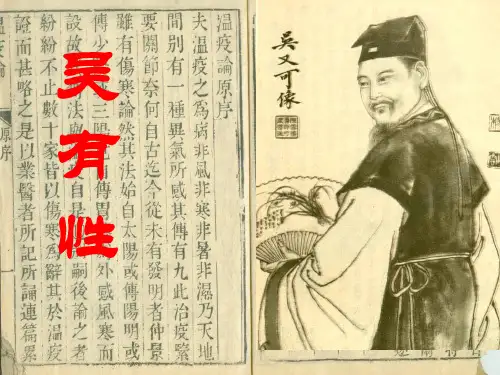 吳有性
吳又可像
溫疫論原序
夫溫疫之為病非風非寒非暑非濕乃天地
間別有一種異氣所感其傳有九此治疫緊
要關節奈何自古迄今從未有發明者仲景
雖有傷寒論然其法始自太陽或傳陽明或
傳少三陽自傳胃外感風寒而
設故法自是嗣後論之者
紛紛不止數十家皆以傷寒為辭其於溫疫
證而甚略之是以業醫者所記所誦連篇累
原序